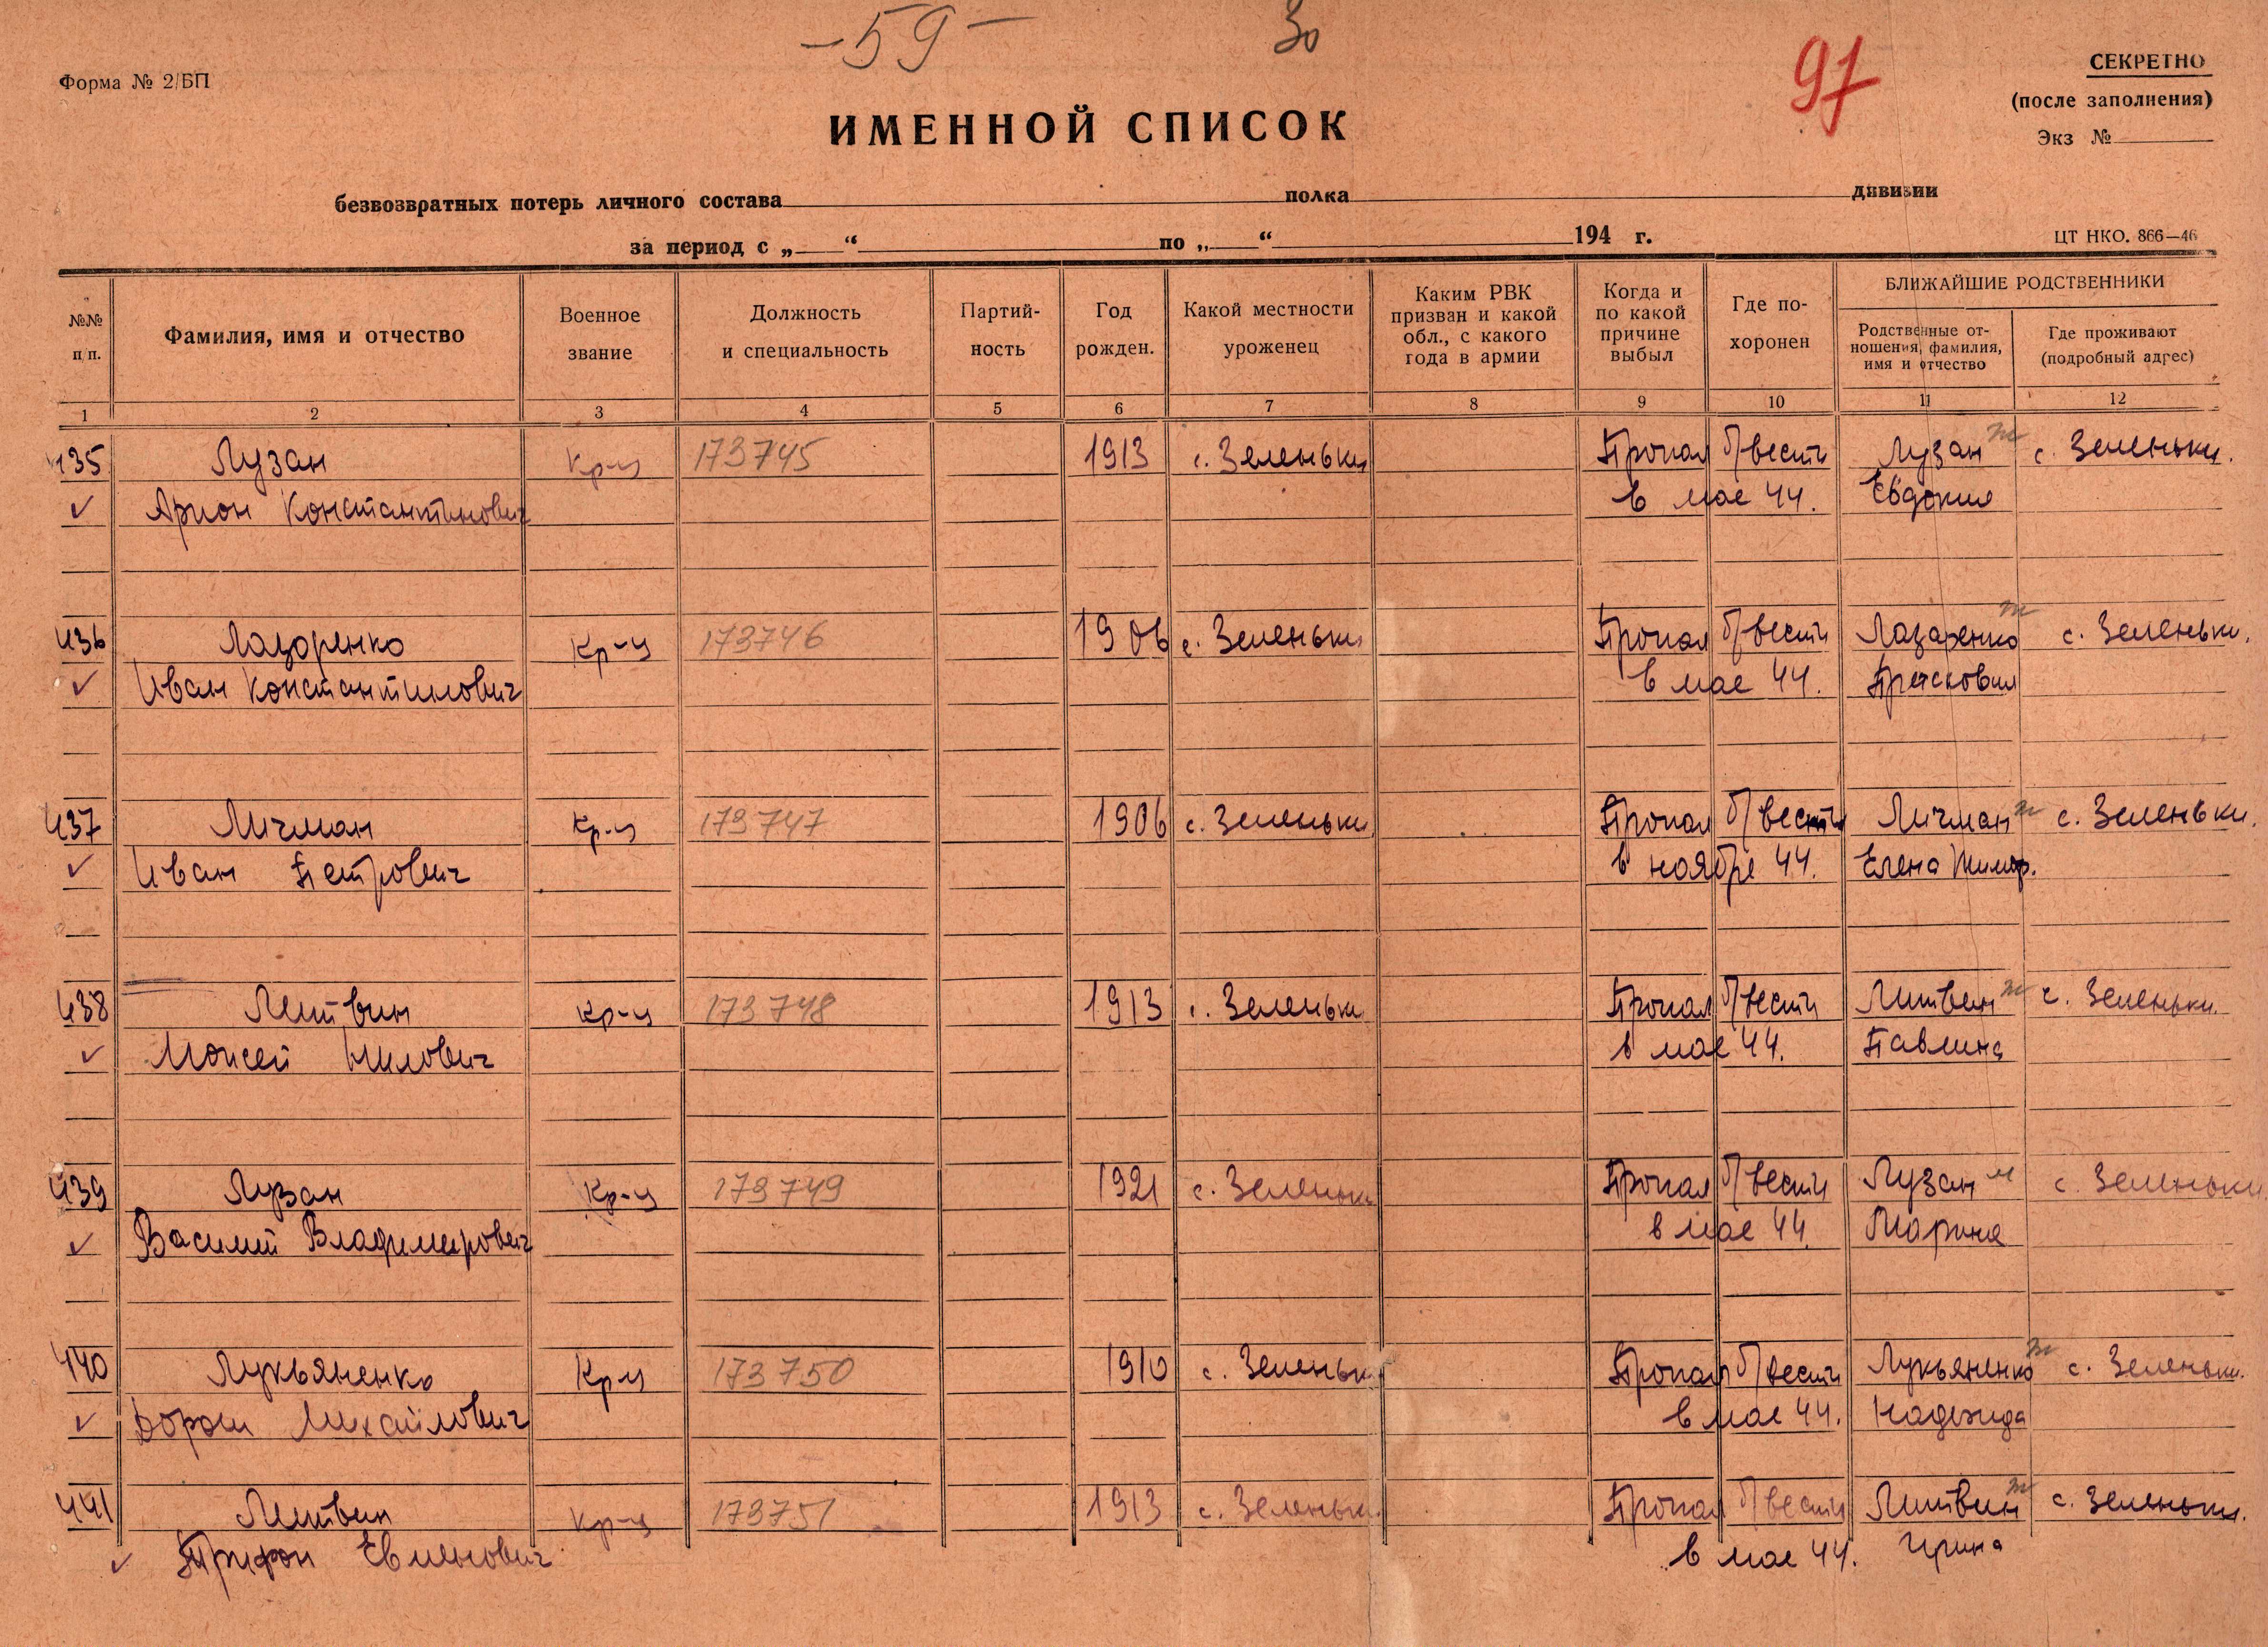 -59-
30
97
Форма № 2/БП
СЕКРЕТНО
(после заполнения)
Экз №
ИМЕННОЙ СПИСОК
безвозвратных потерь личного состава полка дивизии
за период с „ “ по „ “ 194 г.
ЦТ НКО. 866—46
№№ п/п.
Фамилия, имя и отчество
Военное звание
Должность и специальность
Партий-ность
Год рожден.
Какой местности уроженец
Каким РВК призван и какой обл., с какого года в армии
Когда и по какой причине выбыл
Где по-хоронен
БЛИЖАЙШИЕ РОДСТВЕННИКИ
Родственные от-ношения, фамилия, имя и отчество
Где проживают (подробный адрес)
1 2 3 4 5 6 7 8 9 10 11 12
435 Лузан Кр-ц 173745 1913 с. Зеленьки Пропал б/вести Лузан с. Зеленьки.
Арион Константинович в мае 44. Евдокия
436 Лазоренко Кр-ц 173746 1906 с. Зеленьки Пропал б/вести Лазаренко с. Зеленьки.
Иван Константинович в мае 44. Прасковия
437 Личман Кр-ц 173747 1906 с. Зеленьки Пропал б/вести Личман с. Зеленьки.
Иван Петрович в ноябре 44. Елена
438 Литвин Кр-ц 173748 1913 с. Зеленьки Пропал б/вести Литвин с. Зеленьки.
Моисей Нилович в мае 44. Павлина
439 Лузан Кр-ц 173749 1921 с. Зеленьки Пропал б/вести Лузан м с. Зеленьки
Василий Владимирович в мае 44. Марина
440 Лукьяненко Кр-ц 173750 1910 с. Зеленьки Пропал б/вести Лукьяненко с. Зеленьки.
Михайлович в мае 44. Надежда
441 Литвин Кр-ц 173751 1913 с. Зеленьки Пропал б/вести Литвин с. Зеленьки.
Трифон Евменович в мае 44. Ирина